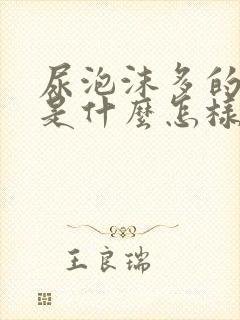 尿泡沫多的
是什麼怎樣
王良瑞